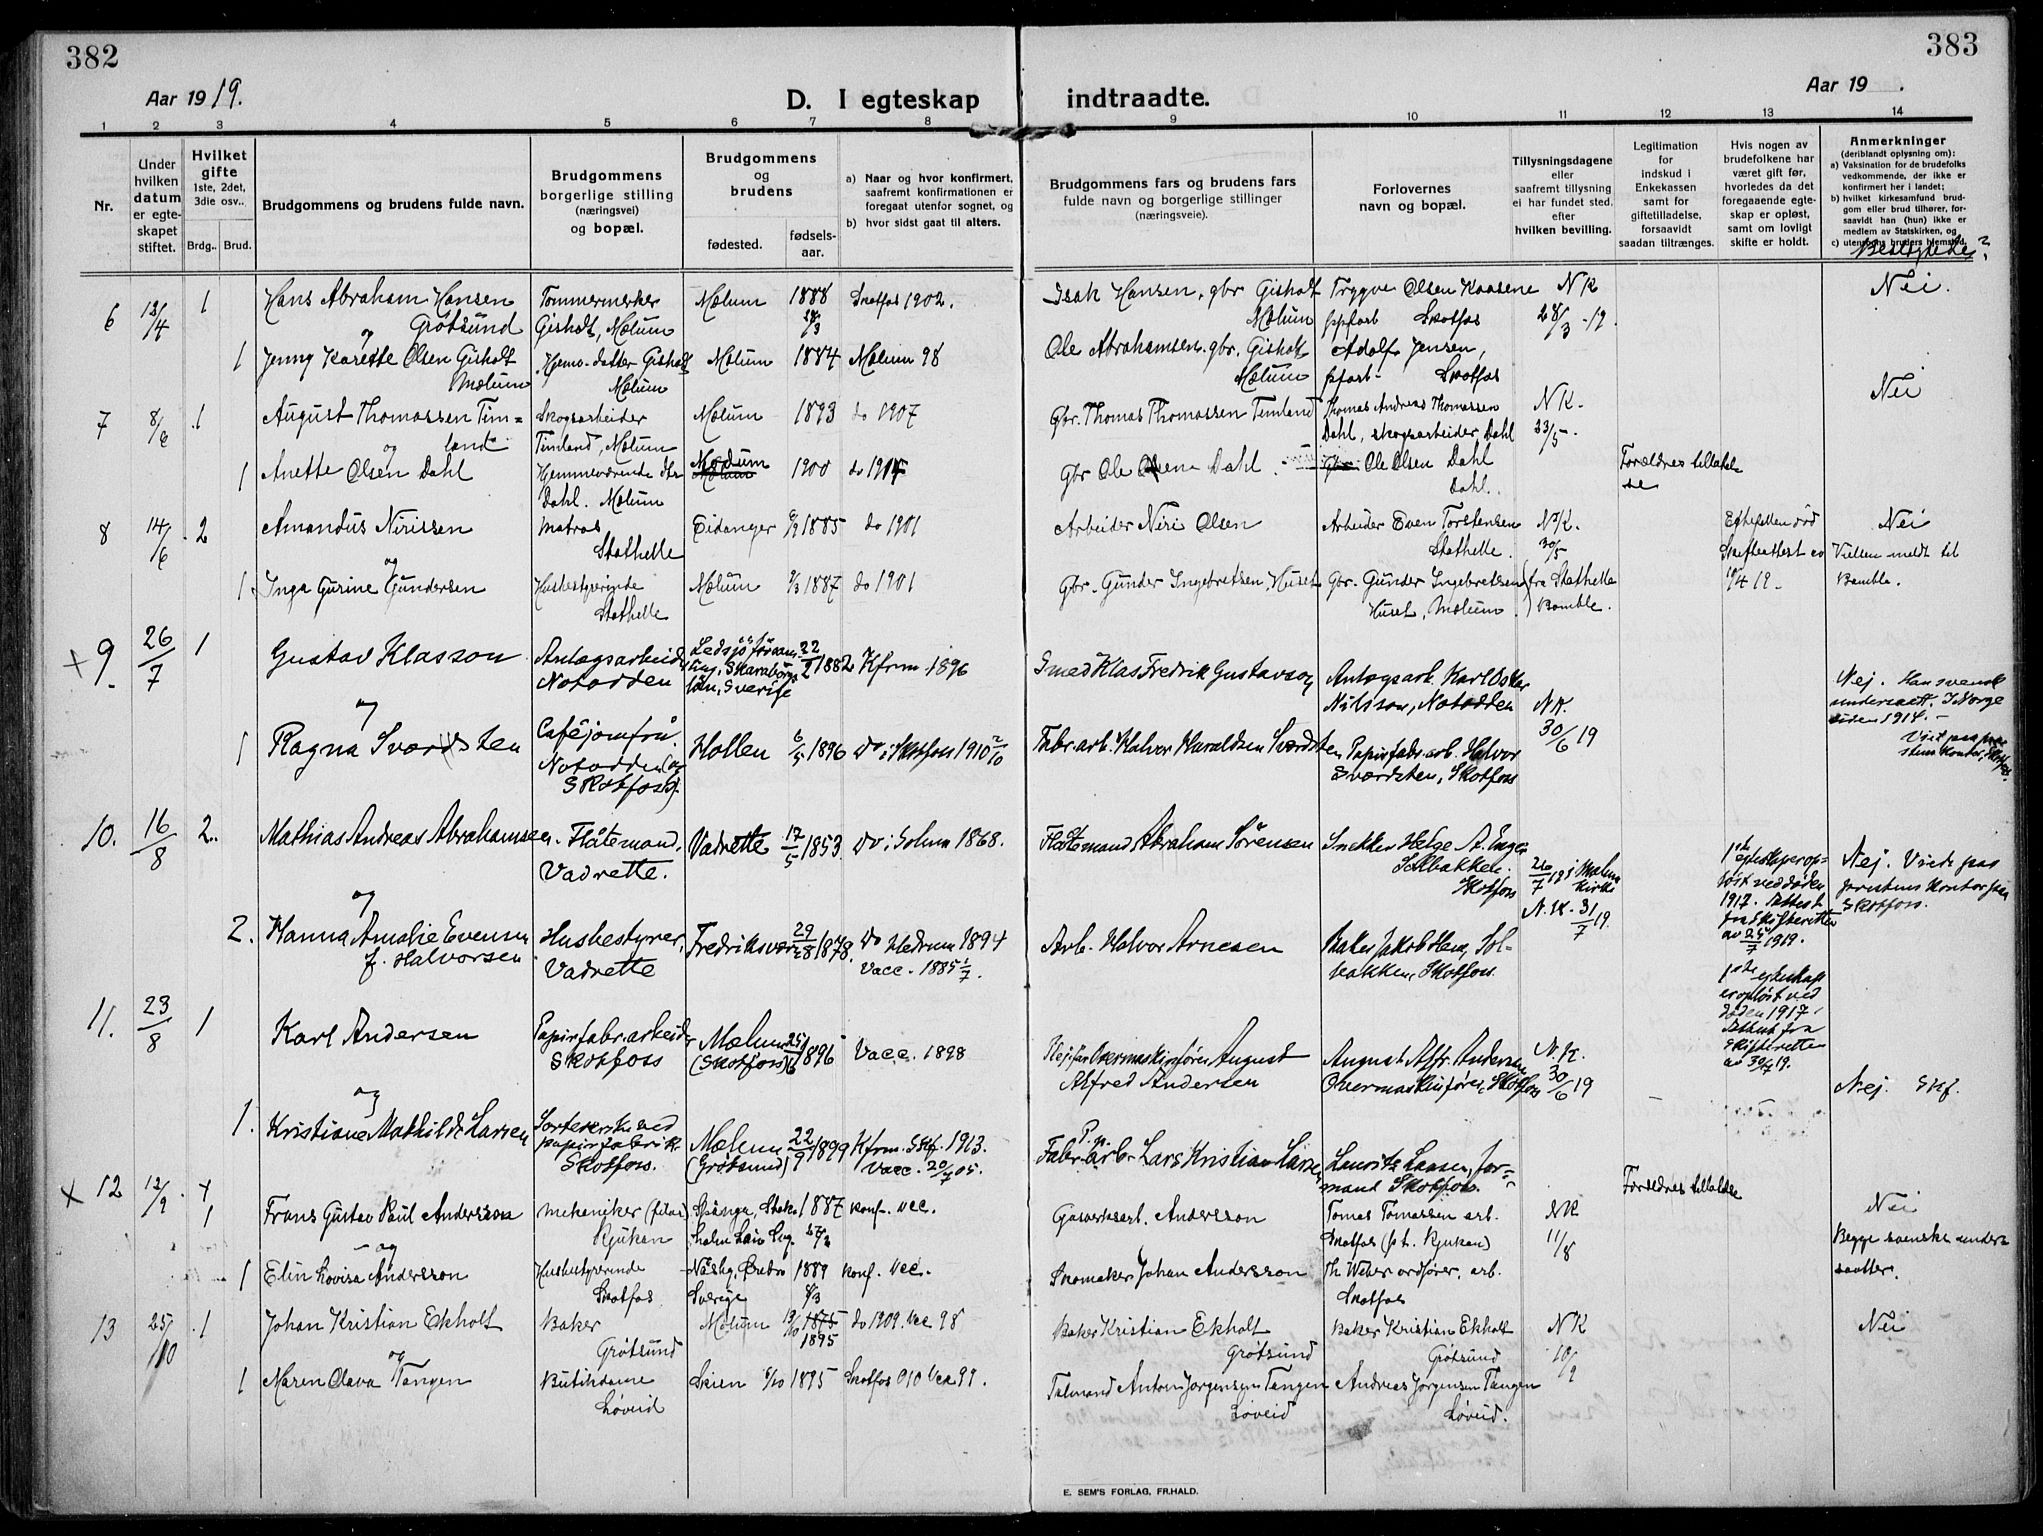 382
Aar 1919.
D. I egteskap
1 2 3 4 5 6 7 8
Nr.
Under hvilken datum er egteskapet stiftet.
Hvilket gifte
1ste, 2det, 3die osv..
Brdg.. Brud.
Brudgommens og brudens fulde navn.
Brudgommens borgerlige stilling (næringsvei) og bopæl.
Brudgommens og brudens
fødested. fødselsaar.
a) Naar og hvor konfirmert, saafremt konfirmationen er foregaat utenfor sognet, og
b) hvor sidst gaat til alters.
6 12/4 1 Hans Abraham Hansen Tømmermerker Mælum 1888 Skotfos 1902.
Grøtsund Gisholt, Mælum
og
1 Jenny Karette Olsen Gisholt Hjemv. datter Gisholt Mælum 1884 Mælum 98
Mælum Mælum
7 8/6 1 August Thomassen Tim= Skogsarbeider Mælum 1893 do 1907
og land Timland, Mælum
1 Anette Olsen Dahl Hjemmeværende dtr Modum 1900 do 1914
Dahl. Mælum
8 14/6 2 Amandus Nirissen Matros Eidanger 1885 do 1901
Stathelle
og
1 Inga Gurine Gundersen Husbestyrerinde Mælum 1887 do 1901
Stathelle
x 9. 26/7 1 Gustav Klasson Anlægsarbeid. Ledsjö församling, Skaraborgs län, Sverige 22/2 1882 Kfrm. 1896
Notodden
og
1 Ragna Sværdsten Caféjomfru Hollen 6/5 1896 Do i Skotfoss 1910 2/10
Notodden (og Skotfoss).
10. 16/8 2. Mathias Andreas Abrahamsen. Flåtemand. Vadrette 17/5 1853 Do i Solum 1868.
Vadrette.
og
2. Hanna Amalie Evensen Husbestyrer, Fredriksværn 29/8 1878. Do Hedrum 1894
f. Halvorsen Vadrette Vacc. 1885 1/7.
11. 23/8 1 Karl Andersen Papirfabr.arbeider Mælum (Skotfoss) 1896 Vacc. 1898
Skotfoss
og
1. Kristiane Mathilde Larsen Sorteverske ved papirfabrik. Mælum (Grøtsund) 22/9 1899 Kfrm. Skf. 1913.
Skotfoss. Vacc. 20/7 05.
x 12 12/9 1 Frans Gustav Paul Andersson mekaniker Spånga, Stokholm Län Svg. 1887 konf. vacc.
Rjukan
og
1 Elin Lovisa Andersson Husbestyrerinde Näsby, Örebro 1889 konf. vacc.
Skotfos Sverige 8/3
13 25/10 1 Johan Kristian Ekholt Baker Mælum 1875 do 1909. Vac 98
Grøtsund 1895
og
1 Maren Olava Tangen Butikdame Skien 1895 Skotfos 910 Vac 99.
Løveid
383
indtraadte.
Aar 19 .
9 10 11 12 13 14
Brudgommens fars og brudens fars fulde navn og borgerlige stillinger (næringsveie).
Forlovernes navn og bopæl.
Tillysningsdagene eller saafremt tillysning ei har fundet sted, efter hvilken bevilling.
Legitimation for indskud i Enkekassen samt for giftetilladelse, forsaavidt saadan tiltrænges.
Hvis nogen av brudefolkene har været gift før, hvorledes da det foregaaende egteskap er opløst, samt om lovligt skifte er holdt.
Anmerkninger
(deriblandt oplysning om):
a) Vaksination for de brudefolks vedkommende, der ikke er konfirmert her i landet;
b) hvilket kirkesamfund brudgom eller brud tilhører, forsaavidt han (hun) ikke er medlem av Statskirken, og
c) utensogns bruders hjemsted.
Beslegtede?
Isak Hansen, gbr Gisholt Trygve Olsen Kaasene NK Nei.
Mælum Skotfos 28/3 - 19
Ole Abrahamsen. gbr. Gisholt Adolf Jensen,
Mælum Skotfos
Gbr. Thomas Thomassen Timland Thomas Andreas Thomassen NK. Nei
Dahl, skogsarbeider, Dahl
Gbr Ole Olsen Dahl Ole Olsen Dahl Forældres tilladelse
Dahl.
Arbeider Niri Olsen Arbeider Even Torstensen NK. Egtefellen død Nei
Stathelle. 30/5 Skifteattest av Vielsen meldt til
Gbr. Gunder Ingebretsen, Huset Gbr. Gunder Ingebretsen fra Stathelle 10/4 19 Bamble.
Huset, Mælum Bamble.
Smed Klas Fredrik Gustavson Anlægsarb. Karl Oskar Nilsson, Notodden NK. Nej. Han svensk undersaatt. I Norge siden 1914.
30/6 19
Fabr. arb. Halvor Haraldsen Sværdsten Papirfabr. arb. Halvor Sværdsten, Skotfoss
Flåtemand Abraham Sørensen Snekker Helge A. Enger Solbakken. Skotfoss
26/7 19 i Mælum kirke
N.K. 31/7 19
1ste egteskap er opløst ved døden 1917. Attest fra skifteretten av 25/7 1919.
Nej. Viede paa prestens kontor paa Skotfoss.
Arb. Halvor Arnesen Baker Jakob Hem, Solbakken, Skotfoss.
1ste egteskap er opløst ved døden 1917. Attest fra skifteretten av 30/7 19.
Overmaskinfører August Alfred Andersen August Alfr. Andersen Overmaskinfører, Skotfoss N.K. 30/6 19
Nej. Skf.
P.p. Fabr. arb. Lars Kristian Larsen Lauritz Larsen, formand Skotfoss.
Forældres tilladelse
Gasverksarb. Andersson Tomas Tomassen arb. NK Nei
Skotfos (p.t. Rjukan) 11/8 Begge svenske undersaatter.
Skomaker Johan Andersson Th Weber ordfører, arb.
Skotfos
Baker Kristian Ekholt Baker Kristian Ekholt NK Nei
Grøtsund Grøtsund 10/9
Talmand Anton Jørgensen Tangen Andreas Jørgensen Tangen
Løveid Løveid.
E. SEM'S FORLAG, FR.HALD.